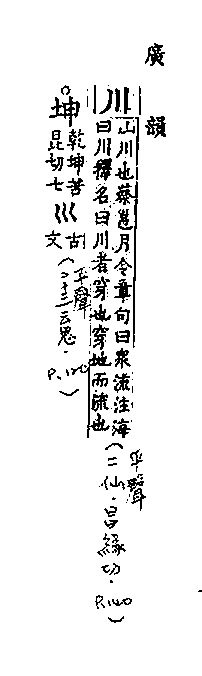 廣韻
川
山川也蔡邕月令章句曰衆流注海
曰川釋名曰川者穿也穿地而流也
(平聲
二仙·昌緣切·P.140)
坤
乾坤苦
昆切七
巛
古
文
(平聲
二十三魂·P.120)